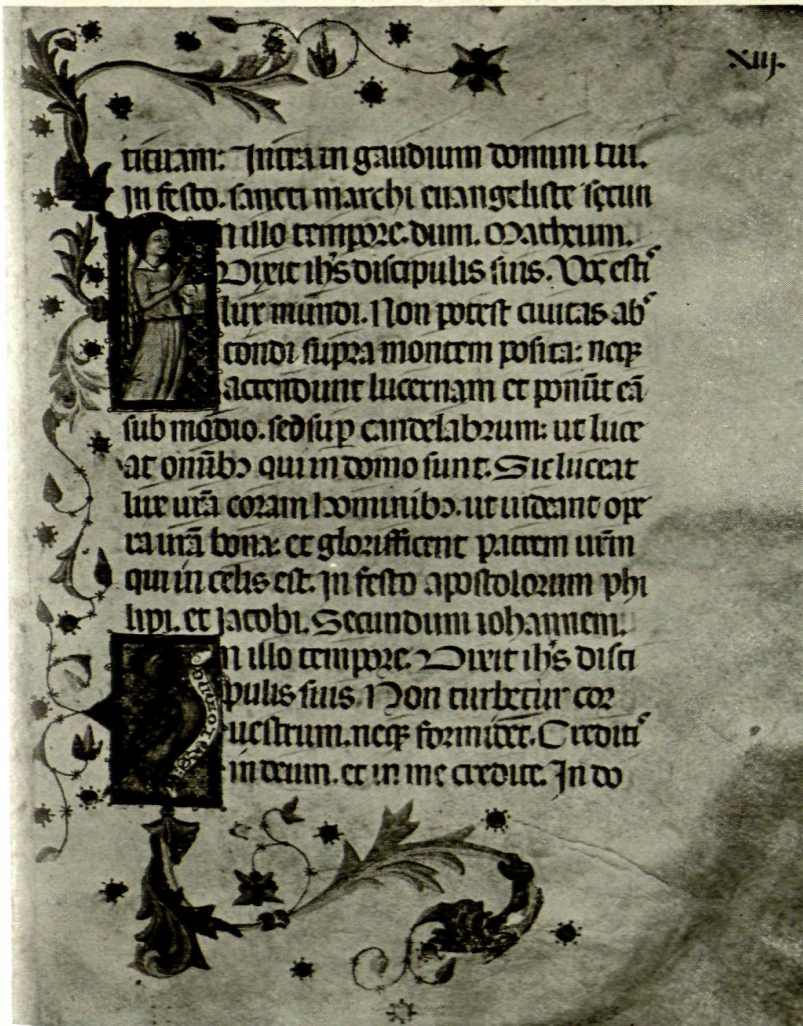 XIIJ.
titiam: Intra in gaudium domini tui.
In festo. sancti marchi euangeliste secun
n illo tempore. dum. Matheum.
Dixit ihs discipulis suis. Vos esti
lux mundi. Non potest ciuitas abs
condi supra montem posita: neqꝫ
accendunt lucernam et ponūt eā
sub modio. sed suꝑ candelabrum: ut luce
at omībꝫ qui in domo sunt. Sic luceat
lux urā coram hominibꝫ. ut uideant ope
ra urā bona: et glorifficent patrem urm̄
qui in celis est. In festo apostolorum phi
lipi. et Jacobi. Secundum iohannem.
n illo tempore. Dixit ihs disci
pulis suis. Non turbetur cor
uestrum. neqꝫ formidet. Crediti
in deum. et in me credite. In do